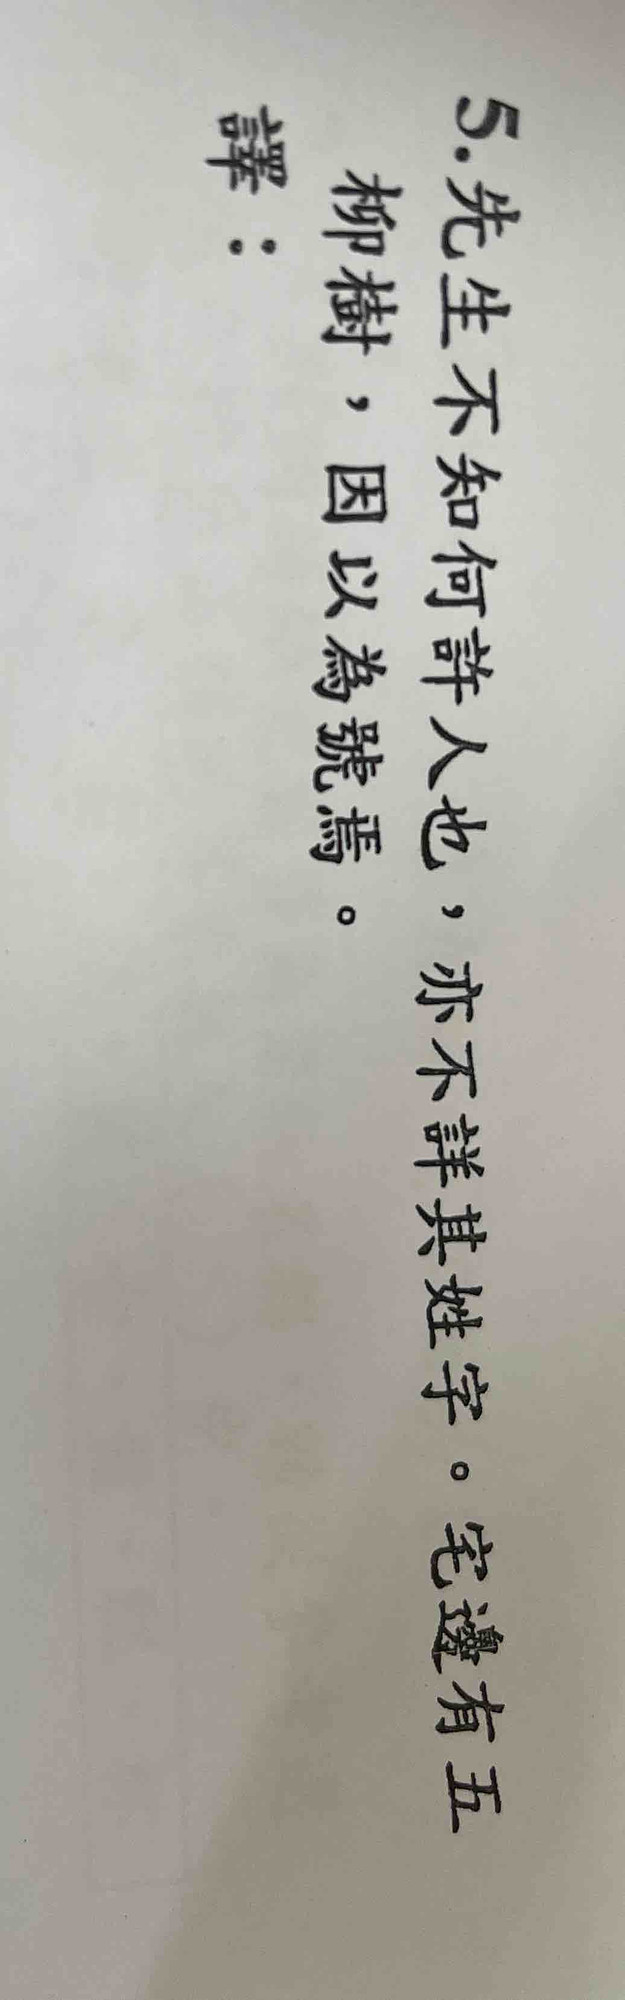 5.先生不知何許人也，亦不詳其姓字。宅邊有五
柳樹，因以為號焉。
譯：